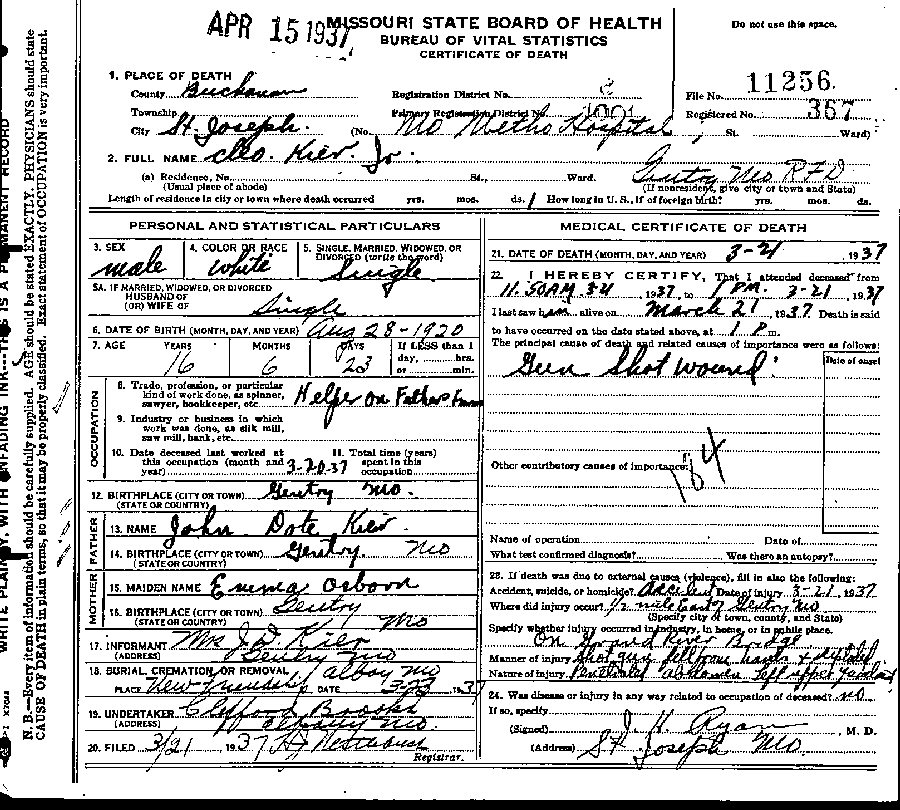 APR 15 1937
MISSOURI STATE BOARD OF HEALTH
BUREAU OF VITAL STATISTICS
CERTIFICATE OF DEATH
Do not use this space.
1. PLACE OF DEATH
County Buchanan
Registration District No.
File No. 11256
Township
Primary Registration District No. 1001
Registered No. 367
City St. Joseph. (No. Mo Metho Hospital, St. Ward)
2. FULL NAME Cleo. Kier. Jr.
(a) Residence, No. St., Ward. Gentry Mo RFD
(Usual place of abode) (If nonresident, give city or town and State)
Length of residence in city or town where death occurred yrs. mos. ds. 1 How long in U. S., if of foreign birth? yrs. mos. ds.
PERSONAL AND STATISTICAL PARTICULARS
3. SEX male
4. COLOR OR RACE white
5. SINGLE, MARRIED, WIDOWED, OR DIVORCED (write the word) Single
5A. IF MARRIED, WIDOWED, OR DIVORCED
HUSBAND OF
(OR) WIFE OF Single
6. DATE OF BIRTH (MONTH, DAY, AND YEAR) Aug 28-1920
7. AGE YEARS 16 MONTHS 6 DAYS 23 If LESS than 1 day, hrs. or min.
OCCUPATION
8. Trade, profession, or particular kind of work done, as spinner, sawyer, bookkeeper, etc. Helper on Fathers Farm
9. Industry or business in which work was done, as silk mill, saw mill, bank, etc.
10. Date deceased last worked at this occupation (month and year) 3-20-37
11. Total time (years) spent in this occupation
12. BIRTHPLACE (CITY OR TOWN) Gentry Mo.
(STATE OR COUNTRY)
FATHER
13. NAME John Dote Kier
14. BIRTHPLACE (CITY OR TOWN) Gentry. Mo
(STATE OR COUNTRY)
MOTHER
15. MAIDEN NAME Emma Osborn
16. BIRTHPLACE (CITY OR TOWN) Gentry
(STATE OR COUNTRY) Mo
17. INFORMANT Mrs J. D. Kier
(ADDRESS) Gentry Mo
18. BURIAL, CREMATION, OR REMOVAL Albany Mo
PLACE New Friendship DATE 3-23 1937
19. UNDERTAKER Clifford Brooks
(ADDRESS) Albany Mo.
20. FILED 3/21 1937
Registrar.
MEDICAL CERTIFICATE OF DEATH
21. DATE OF DEATH (MONTH, DAY, AND YEAR) 3-21 1937
22. I HEREBY CERTIFY, That I attended deceased from
11.50AM 3-21, 1937, to 1 PM. 3-21, 1937
I last saw him alive on March 21, 1937. Death is said
to have occurred on the date stated above, at 1 P m.
The principal cause of death and related causes of importance were as follows:
Date of onset
Gun Shot wound
Other contributory causes of importance:
184
Name of operation Date of
What test confirmed diagnosis? Was there an autopsy?
23. If death was due to external causes (violence), fill in also the following:
Accident, suicide, or homicide? Accident Date of injury 3-21 1937
Where did injury occur? 1/2 mile East of Gentry Mo
(Specify city or town, county, and State)
Specify whether injury occurred in industry, in home, or in public place.
On Grand River Bridge
Manner of injury Shot gun fell from hands & exploded
Nature of injury Penetrated abdomen left upper
24. Was disease or injury in any way related to occupation of deceased? no.
If so, specify
(Signed) J. H. Ryan, M. D.
(Address) St Joseph Mo.
N. B.—Every item of information should be carefully supplied. AGE should be stated EXACTLY. PHYSICIANS should state
CAUSE OF DEATH in plain terms, so that it may be properly classified. Exact statement of OCCUPATION is very important.